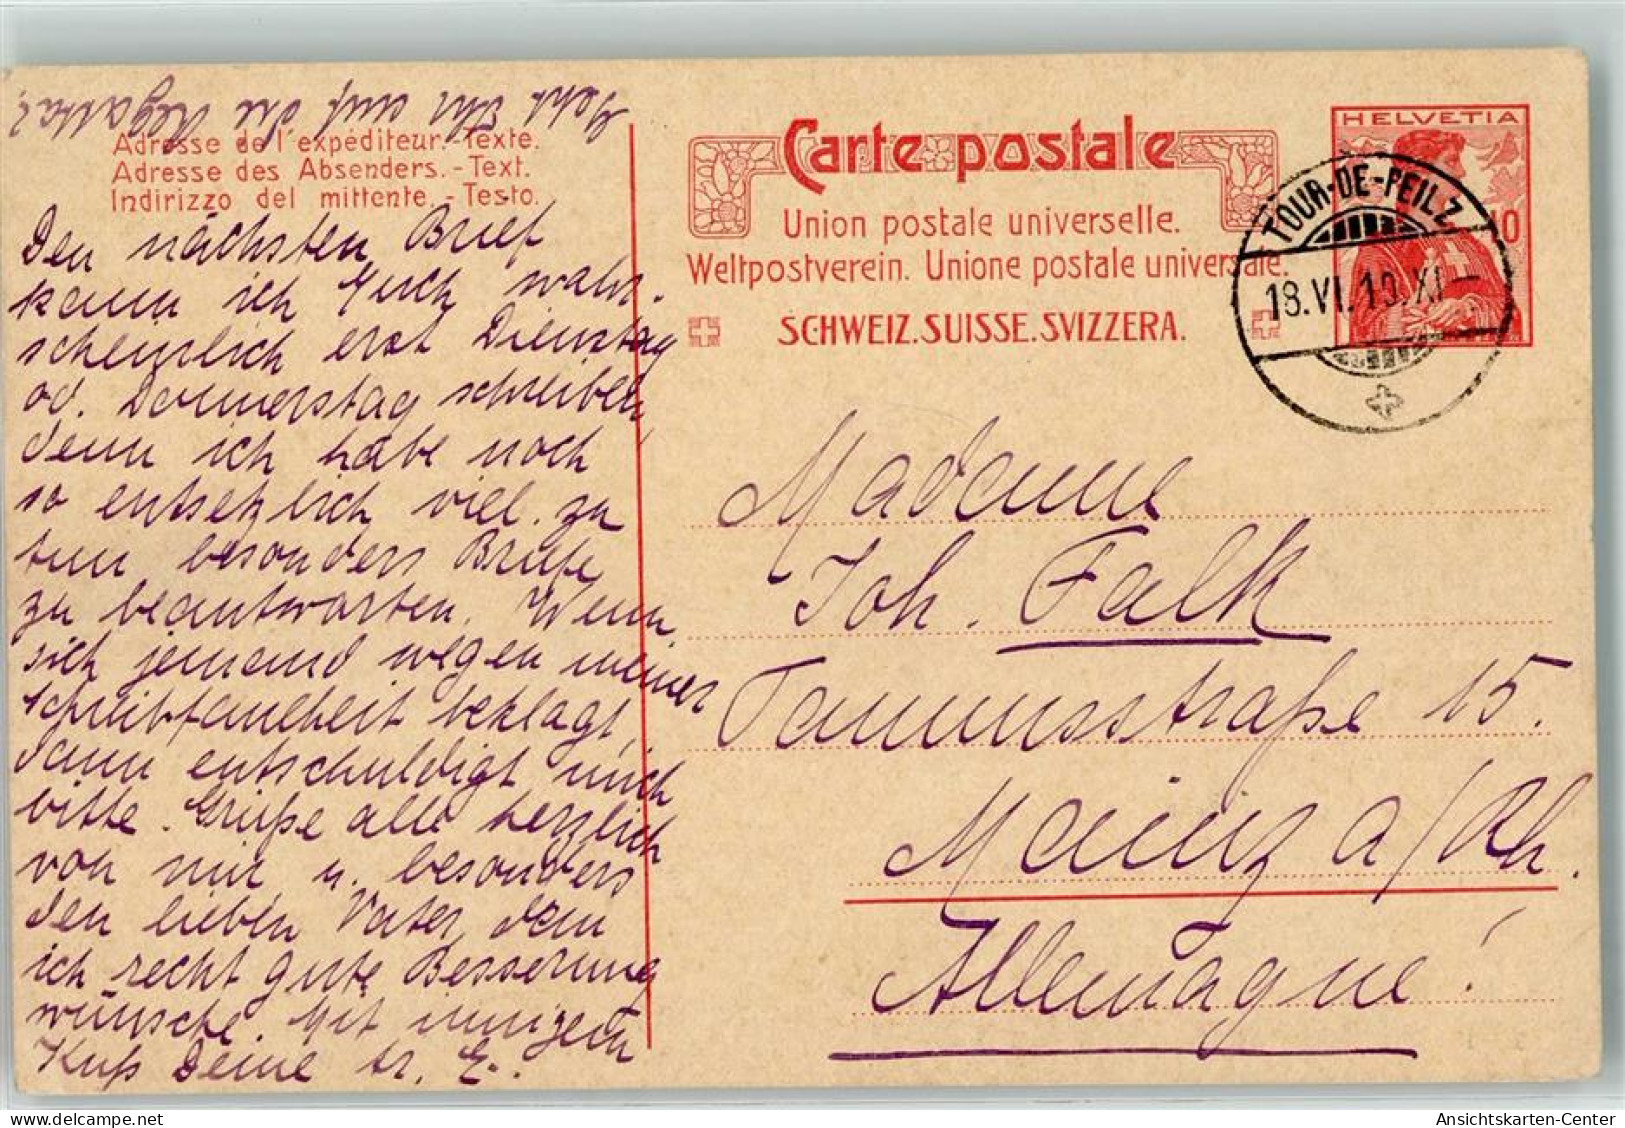 Geht Ihr auf die Regatta?
Adresse de l'expéditeur.-Texte.
Adresse des Absenders.-Text.
Indirizzo del mittente.-Testo.
Den nächsten Brief
kann ich Euch wahr-
scheinlich erst Dienstag
od. Donnerstag schreiben,
denn ich habe noch
so entsetzlich viel zu
tun besonders Briefe
zu beantworten. Wenn
sich jemand wegen meiner
Schreibfaulheit beklagt,
dann entschuldigt mich
bitte. Grüße alle herzlich
von mir u. besonders
den lieben Vater, dem
ich recht gute Besserung
wünsche. Mit innigem
Kuß Deine tr. E.
Carte postale
Union postale universelle.
Weltpostverein. Unione postale universale.
SCHWEIZ. SUISSE. SVIZZERA.
HELVETIA
10
TOUR-DE-PEILZ
18.VI.10.XI-
Madame
Joh. Falk
Taunusstraße 15.
Mainz a/Rh.
Allemagne!
Ansichtskarten-Center